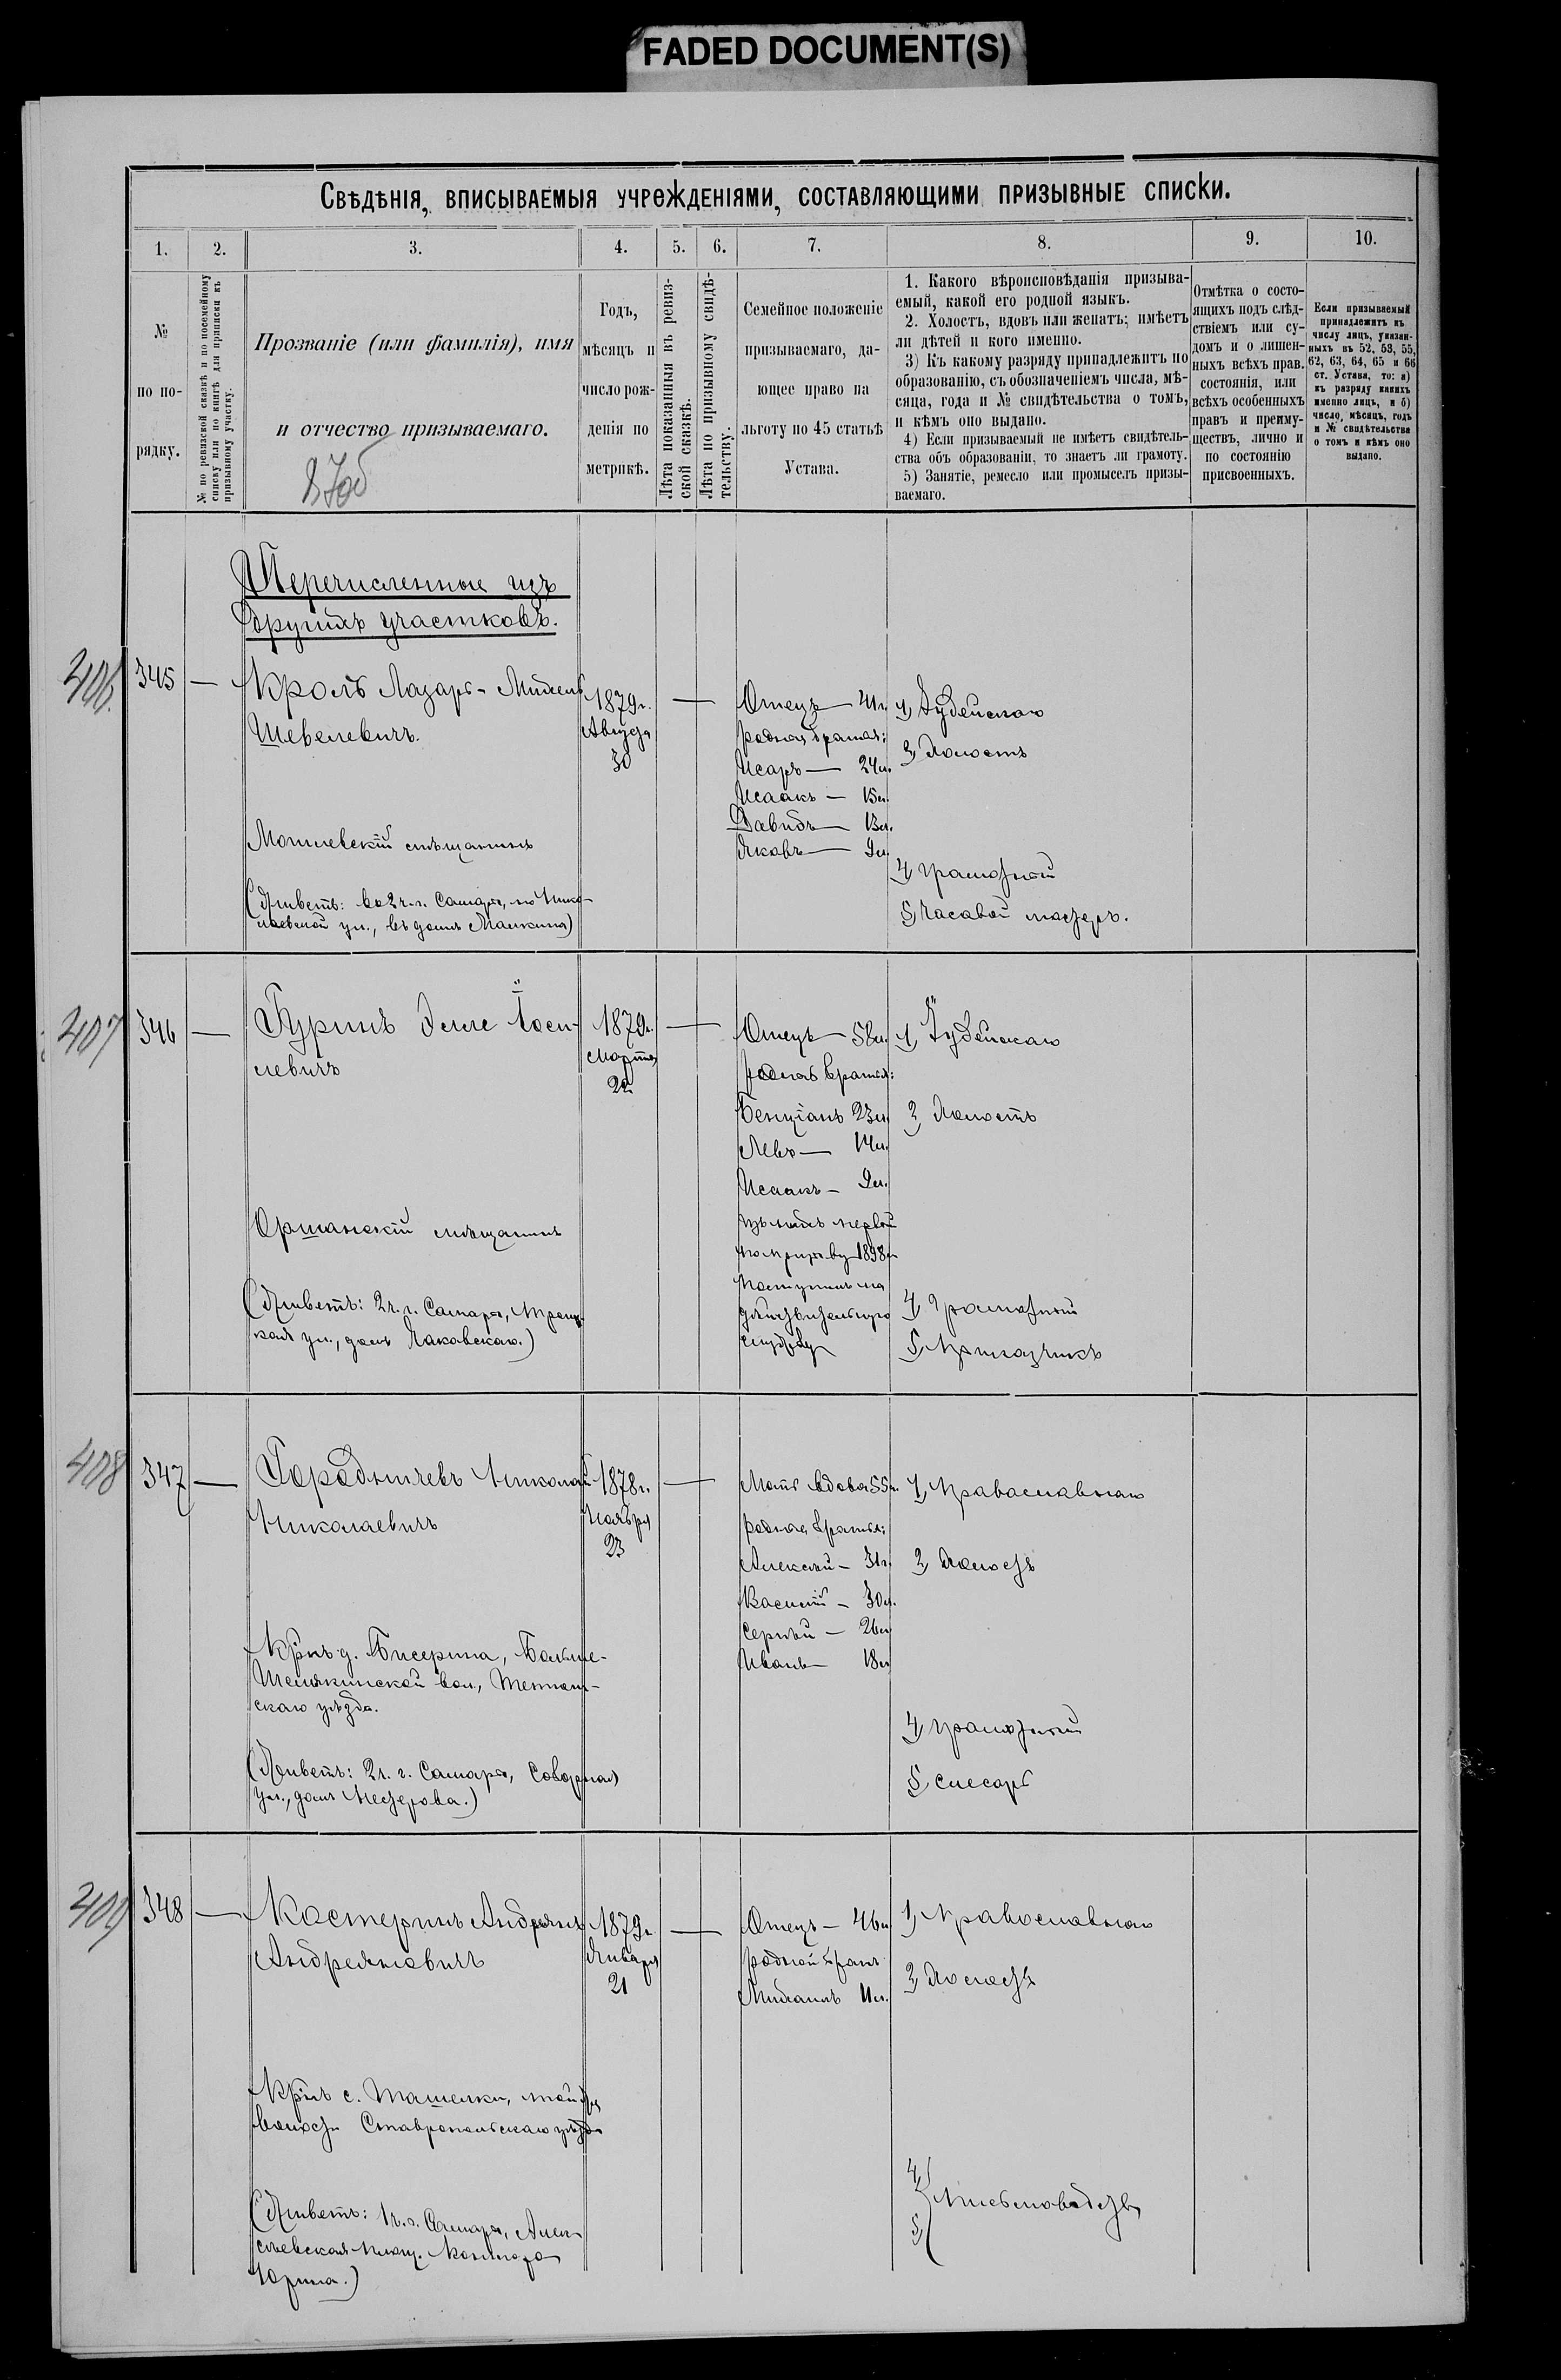 FADED DOCUMENT(S)
Свѣдѣнія, вписываемыя учрежденіями, составляющими призывные списки.
1. 2. 3. 4. 5. 6. 7. 8. 9. 10.
№
по по-
рядку.
№ по ревизской сказкѣ и по посемейному
списку или по книгѣ для приписки къ
призывному участку.
Прозваніе (или фамилія), имя
и отчество призываемаго.
Годъ,
мѣсяцъ и
число рож-
денія по
метрикѣ.
Лѣта показанныя въ ревиз-
ской сказкѣ.
Лѣта по призывному свидѣ-
тельству.
Семейное положеніе
призываемаго, да-
ющее право на
льготу по 45 статьѣ
Устава.
1. Какого вѣроисповѣданія призыва-
емый, какой его родной языкъ.
2. Холостъ, вдовъ или женатъ; имѣетъ
ли дѣтей и кого именно.
3) Къ какому разряду принадлежитъ по
образованію, съ обозначеніемъ числа, мѣ-
сяца, года и № свидѣтельства о томъ,
и кѣмъ оно выдано.
4) Если призываемый не имѣетъ свидѣтель-
ства объ образованіи, то знаетъ ли грамоту.
5) Занятіе, ремесло или промыселъ призы-
ваемаго.
Отмѣтка о состо-
ящихъ подъ слѣд-
ствіемъ или су-
домъ и о лишен-
ныхъ всѣхъ прав.
состоянія, или
всѣхъ особенныхъ
правъ и преиму-
ществъ, лично и
по состоянію
присвоенныхъ.
Если призываемый
принадлежитъ къ
числу лицъ, указан-
ныхъ въ 52, 53, 55,
62, 63, 64, 65 и 66
ст. Устава, то: а)
къ разряду какихъ
именно лицъ, и б)
число, мѣсяцъ, годъ
и № свидѣтельства
о томъ и кѣмъ оно
выдано.
Перечисленные изъ
другихъ участковъ.
406. 345 —
Кроль Лазарь-
Шевелевичъ.
1879 г.
Августа
30
Отецъ — 41 г.
родные братья:
Исаръ — 24 л.
Исаакъ — 15 л.
Давидъ — 13 л.
Яковъ — 9 л.
1, Іудейскаго
2, Холостъ
4, грамотный
5, Часовой мастеръ.
Могилевскій мѣщанинъ
(Живетъ: во 2 ч. г. Самары, по Нико-
лаевской ул., въ домѣ Малкина)
407 346 —
Гуринъ Іоси-
левичъ
1879 г.
Марта
22
Отецъ — 58 л.
родные братья:
Бенціанъ 23 л.
Левъ — 14 л.
Исаакъ — 9 л.
Изъ нихъ первый
по призыву 1898 г.
поступилъ на
дѣйствительную
службу
1, Іудейскаго
2, Холостъ
4, Грамотный
5, Приказчикъ
Оршанскій мѣщанинъ
(Живетъ: 2 ч. г. Самары, Троиц-
кая ул., домъ Чаковскаго.)
408 347 —
Городничевъ Николай
Николаевичъ
1878 г.
Ноября
23
Мать вдова 55 л.
родные братья:
Алексѣй — 31 г.
Василій — 30 л.
Сергѣй — 26 л.
Иванъ — 18 л.
1, Православнаго
2, Холостъ
4, грамотный
5, слесарь
Кр̃нъ д. Бисерина, Больше-
Шемякинской вол., Тетюш-
скаго уѣзда.
(Живетъ: 2 ч. г. Самары, Соборная
ул., домъ Нестерова.)
409 348 —
Костеринъ Андреянъ
Андреяновичъ
1879 г.
Января
21
Отецъ — 46 л.
родной братъ
Михаилъ 11 л.
1, Православнаго
2, Холостъ
4,
5, Письмоводство
Кр̃нъ с. Ташелки, той же
волости Ставропольскаго уѣзда
(Живетъ: 1 ч. г. Самары, Алек-
сѣевская площ. Контора
Юрина.)